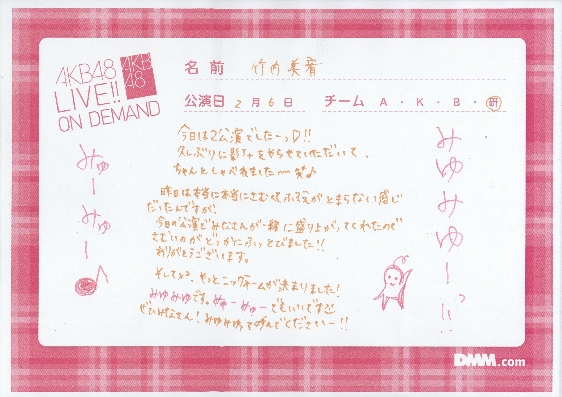 AKB48
LIVE!!
ON DEMAND
AKB
48
名前 竹内美宥
公演日 2月6日 チーム A・K・B・研
今日は2公演でしたーっ♡!!
久しぶりに影アナをやらせていただいて、
ちゃんとしゃべれました
昨日は本当に本当にさむくて、ふるえがとまらない感じ
だったんですが、
今日の公演でみなさんが一緒に盛り上がってくれたので
さむいのがどっかにふっとびました!!
ありがとうございます。
そして、やっとニックネームが決まりました!
みゆみゆです。みゅーみゅーでもいいです
ぜひみなさん!みゆみゆって呼んでくださいー!!
みゅーみゅー♪
みゆみゆーっ!!
DMM.com